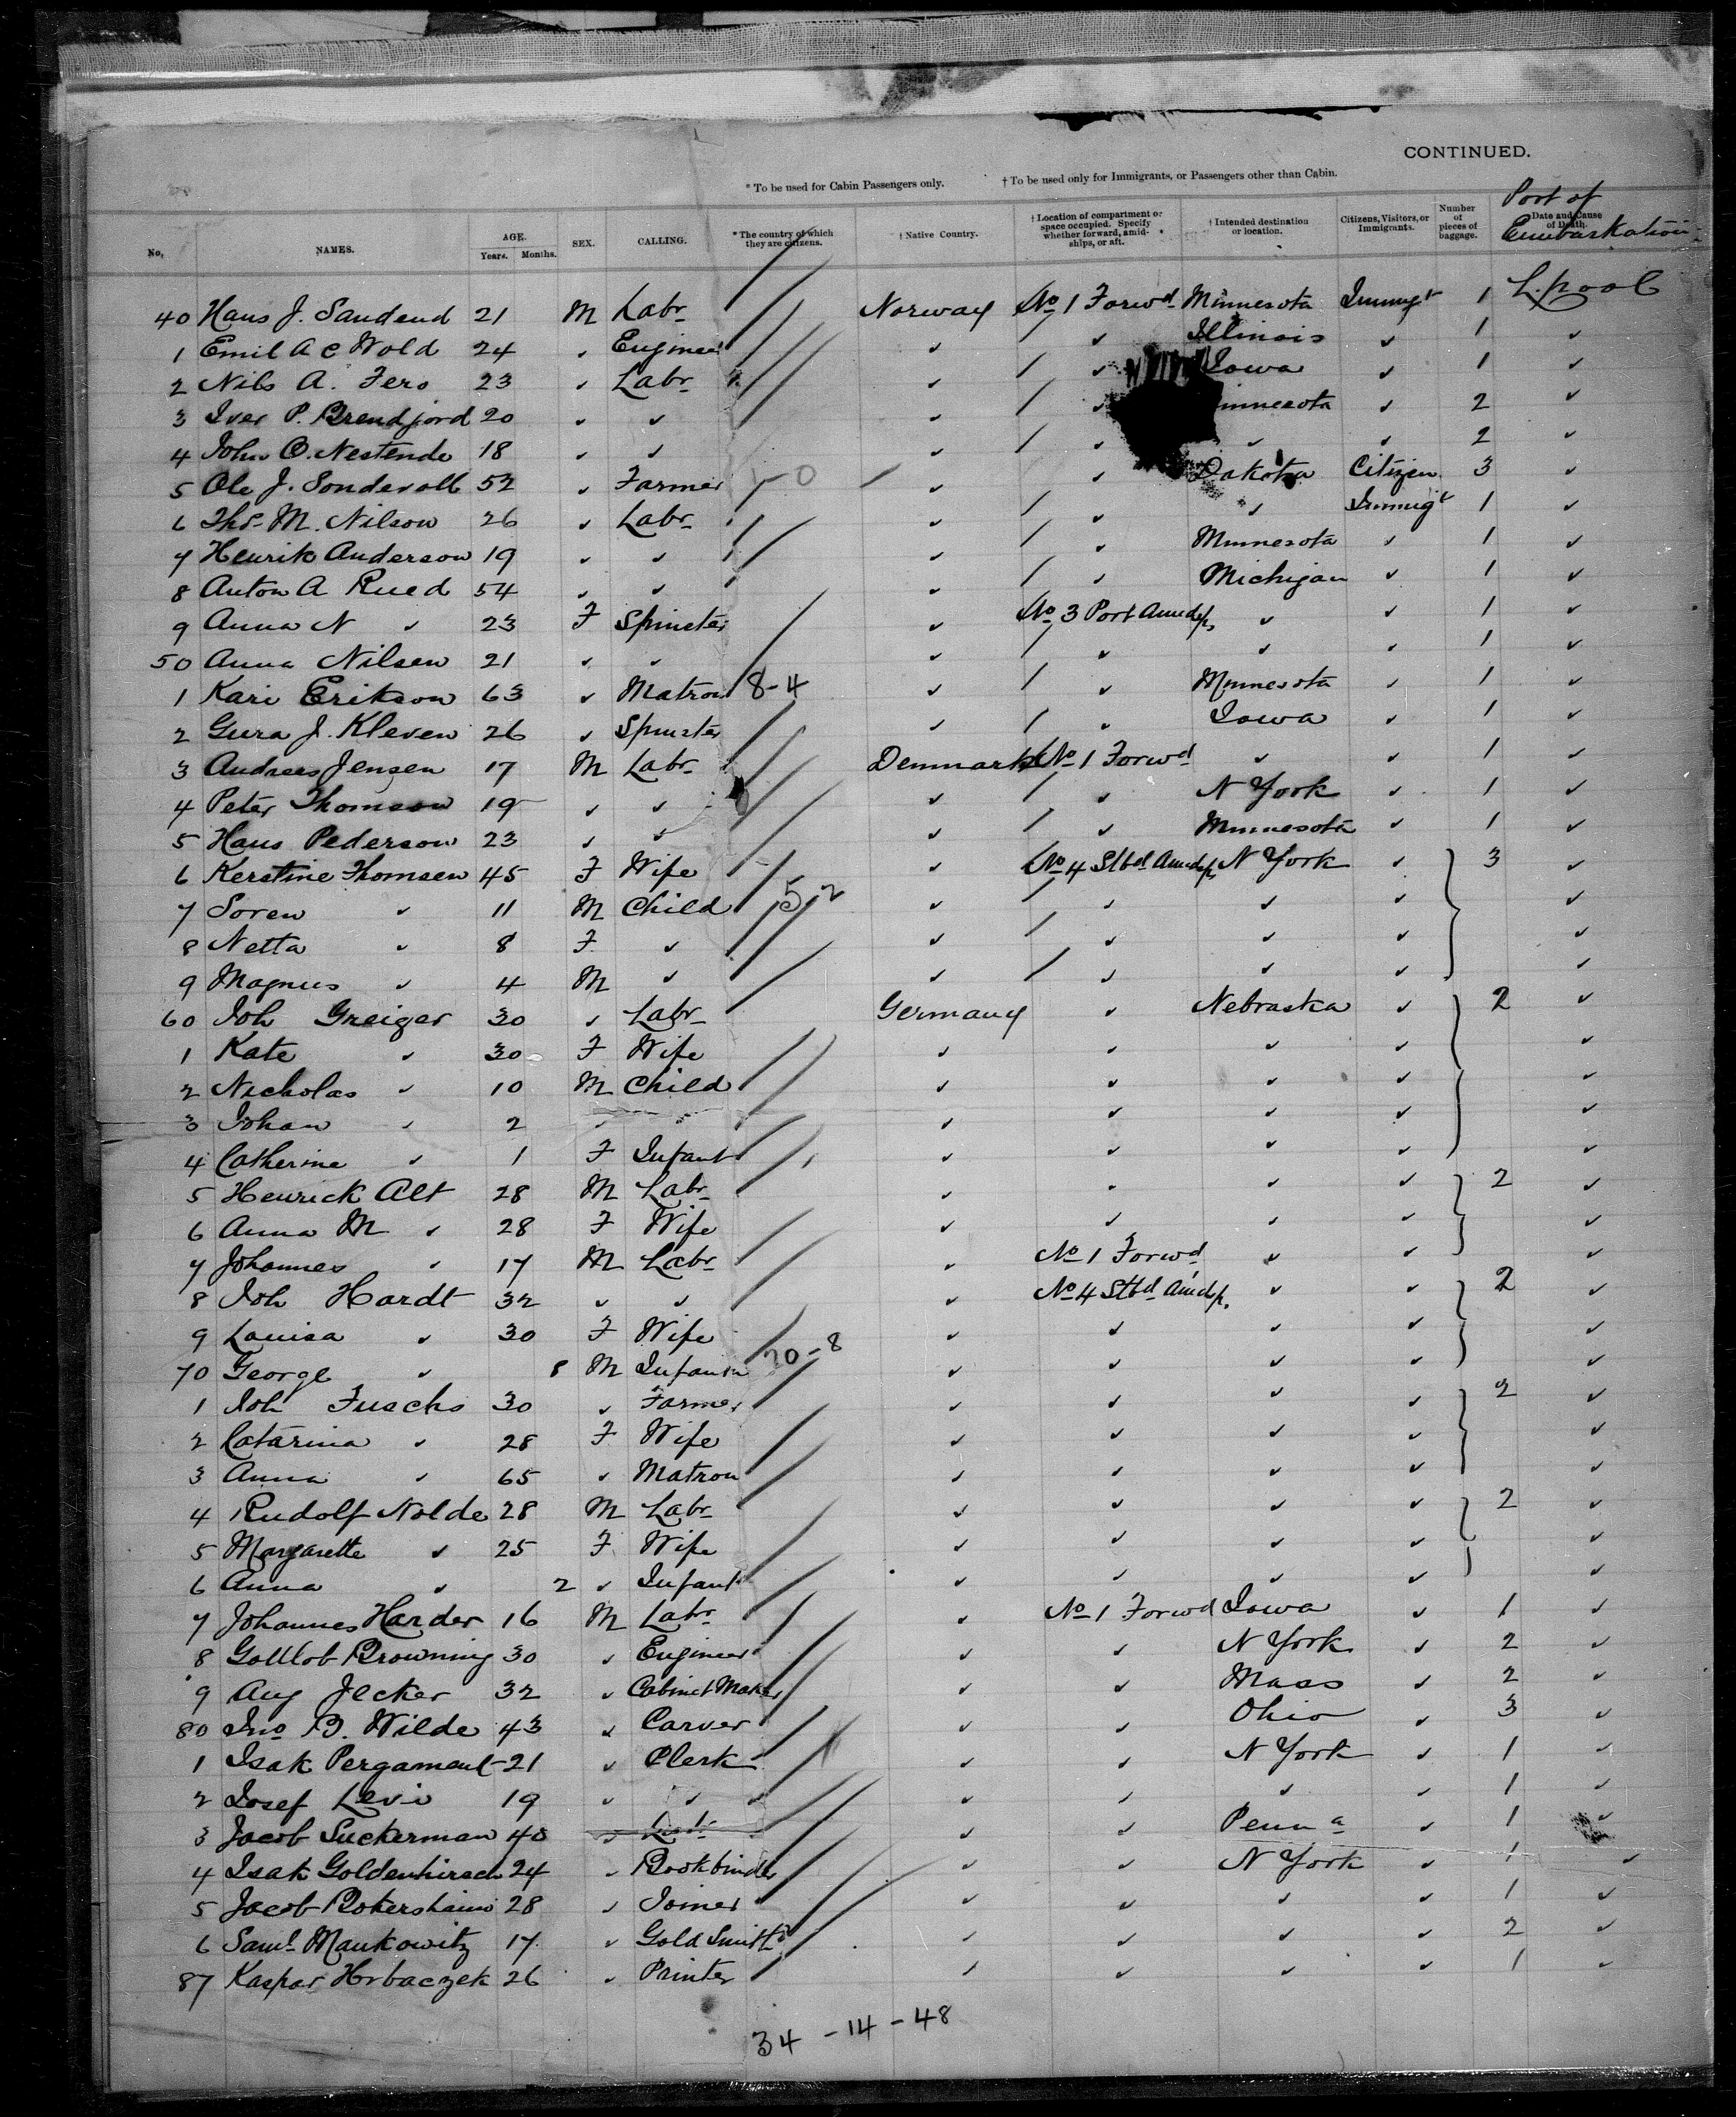 CONTINUED.
* To be used for Cabin Passengers only. † To be used only for Immigrants, or Passengers other than Cabin.
Port of Embarkation
No. NAMES. AGE. Years. Months. SEX. CALLING. * The country of which they are citizens. † Native Country. † Location of compartment or space occupied. Specify whether forward, amidships, or aft. † Intended destination or location. Citizens, Visitors, or Immigrants. Number of pieces of baggage. Date and Cause of Death.
40 Hans J. Sandend 21 M Labr Norway No 1 Forwd Minnesota Immigt 1 L.pool
1 Emil A C Wold 24 ✓ Engineer ✓ / ✓ Illinois ✓ 1 ✓
2 Nils A. Fero 23 ✓ Labr ✓ / ✓ Iowa ✓ 1 ✓
3 Iver P. Brendjord 20 ✓ ✓ ✓ / ✓ innesota ✓ 2 ✓
4 John O. Nestende 18 ✓ ✓ ✓ / ✓ ✓ ✓ 2 ✓
5 Ole J. Sondervoll 52 ✓ Farmer 1-0 / ✓ ✓ Dakota Citizen 3 ✓
6 Thos M. Nilson 26 ✓ Labr ✓ / ✓ ✓ Immigt 1 ✓
7 Henrik Anderson 19 ✓ ✓ ✓ / ✓ Minnesota ✓ 1 ✓
8 Anton A Rued 54 ✓ ✓ ✓ / ✓ Michigan ✓ 1 ✓
9 Anna N ✓ 23 F Spinster ✓ No 3 Port Amidsp ✓ ✓ 1 ✓
50 Anna Nilsen 21 ✓ ✓ ✓ / ✓ ✓ ✓ 1 ✓
1 Kari Erikson 63 ✓ Matron 8-4 ✓ / ✓ Minnesota ✓ 1 ✓
2 Gura J. Kleven 26 ✓ Spinster ✓ / ✓ Iowa ✓ 1 ✓
3 Andreas Jensen 17 M Labr Denmark No 1 Forwd ✓ ✓ 1 ✓
4 Peter Thomson 19 ✓ ✓ ✓ / ✓ N York ✓ 1 ✓
5 Hans Pederson 23 ✓ ✓ ✓ / ✓ Minnesota ✓ 1 ✓
6 Kerstine Thomsen 45 F Wife ✓ No 4 Stbd Amidsp N York ✓ 3 ✓
7 Soren ✓ 11 M Child 5-2 ✓ / ✓ ✓ ✓ ✓
8 Netta ✓ 8 F ✓ ✓ / ✓ ✓ ✓ ✓
9 Magnus ✓ 4 M ✓ ✓ / ✓ ✓ ✓ ✓
60 Joh Greiger 30 ✓ Labr Germany ✓ Nebraska ✓ 2 ✓
1 Kate ✓ 30 F Wife ✓ ✓ ✓ ✓ ✓
2 Nicholas ✓ 10 M Child ✓ ✓ ✓ ✓ ✓
3 Johan ✓ 2 ✓ ✓ ✓ ✓ ✓ ✓
4 Catherine ✓ 1 F Infant ✓ ✓ ✓ ✓ ✓
5 Henrick Alt 28 M Labr ✓ ✓ ✓ ✓ 2 ✓
6 Anna M ✓ 28 F Wife ✓ ✓ ✓ ✓ ✓
7 Johannes ✓ 17 M Labr ✓ No 1 Forwd ✓ ✓ ✓
8 Joh Hardt 32 ✓ ✓ ✓ No 4 Stbd Amidsp. ✓ ✓ 2 ✓
9 Louisa ✓ 30 F Wife ✓ ✓ ✓ ✓ ✓
70 George ✓ 8 M Infant 20-8 ✓ ✓ ✓ ✓ ✓
1 Joh Fuschs 30 ✓ Farmer ✓ ✓ ✓ ✓ 2 ✓
2 Catarina ✓ 28 F Wife ✓ ✓ ✓ ✓ ✓
3 Anna ✓ 65 ✓ Matron ✓ ✓ ✓ ✓ ✓
4 Rudolf Nolde 28 M Labr ✓ ✓ ✓ ✓ 2 ✓
5 Margarette ✓ 25 F Wife ✓ ✓ ✓ ✓ ✓
6 Anna ✓ 2 ✓ Infant ✓ ✓ ✓ ✓ ✓
7 Johannes Harder 16 M Labr ✓ No 1 Forwd Iowa ✓ 1 ✓
8 Gottlob Browning 30 ✓ Engineer ✓ ✓ N York ✓ 2 ✓
9 Aug Jecker 32 ✓ Cabinet Maker ✓ ✓ Mass ✓ 2 ✓
80 Jno B. Wilde 43 ✓ Carver ✓ ✓ Ohio ✓ 3 ✓
1 Isak Pergament 21 ✓ Clerk ✓ ✓ N York ✓ 1 ✓
2 Josef Levi 19 ✓ ✓ ✓ ✓ ✓ ✓ 1 ✓
3 Jacob Suckerman 40 ✓ Labr ✓ ✓ Penna ✓ 1 ✓
4 Isak Goldenhirsch 24 ✓ Bookbinder ✓ ✓ N York ✓ 1 ✓
5 Jacob 28 ✓ Joiner ✓ ✓ ✓ ✓ 1 ✓
6 Saml Mankowitz 17 ✓ Gold Smith ✓ ✓ ✓ ✓ 2 ✓
87 Kaspar Hrbaczek 26 ✓ Printer ✓ ✓ ✓ ✓ 1 ✓
34 - 14 - 48